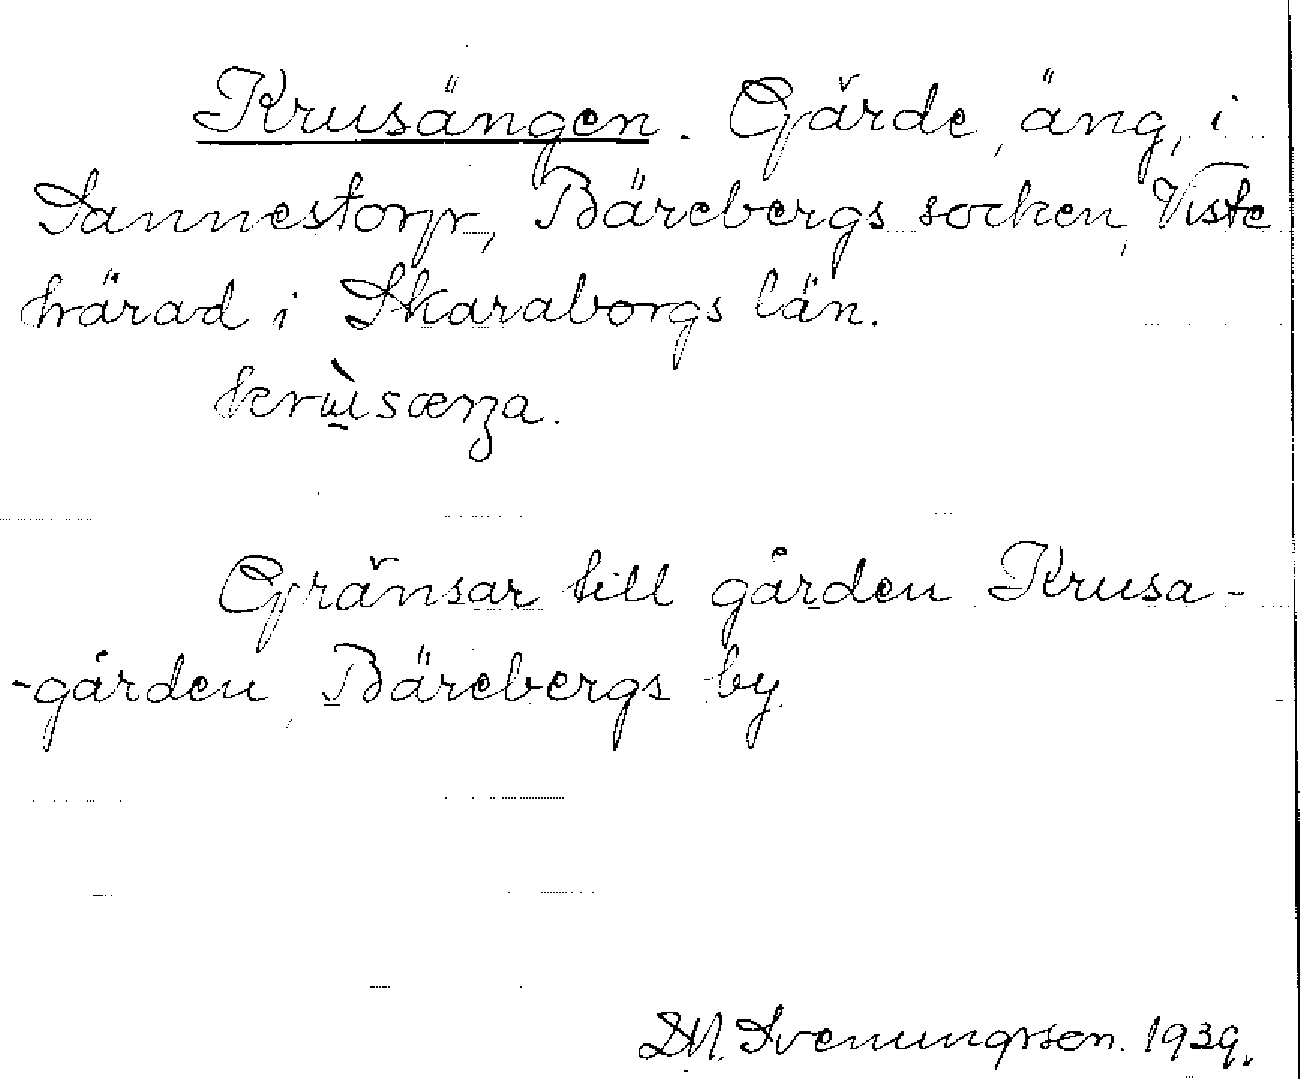 Krusängen. Gärde, äng, i
Sannestorp, Bärebergs socken, Viste
härad i Skaraborgs län.
krɯ̀sæŋa.
Gränsar till gården Krusa-
-gården, Bärebergs by.
Svenungsson. 1939.